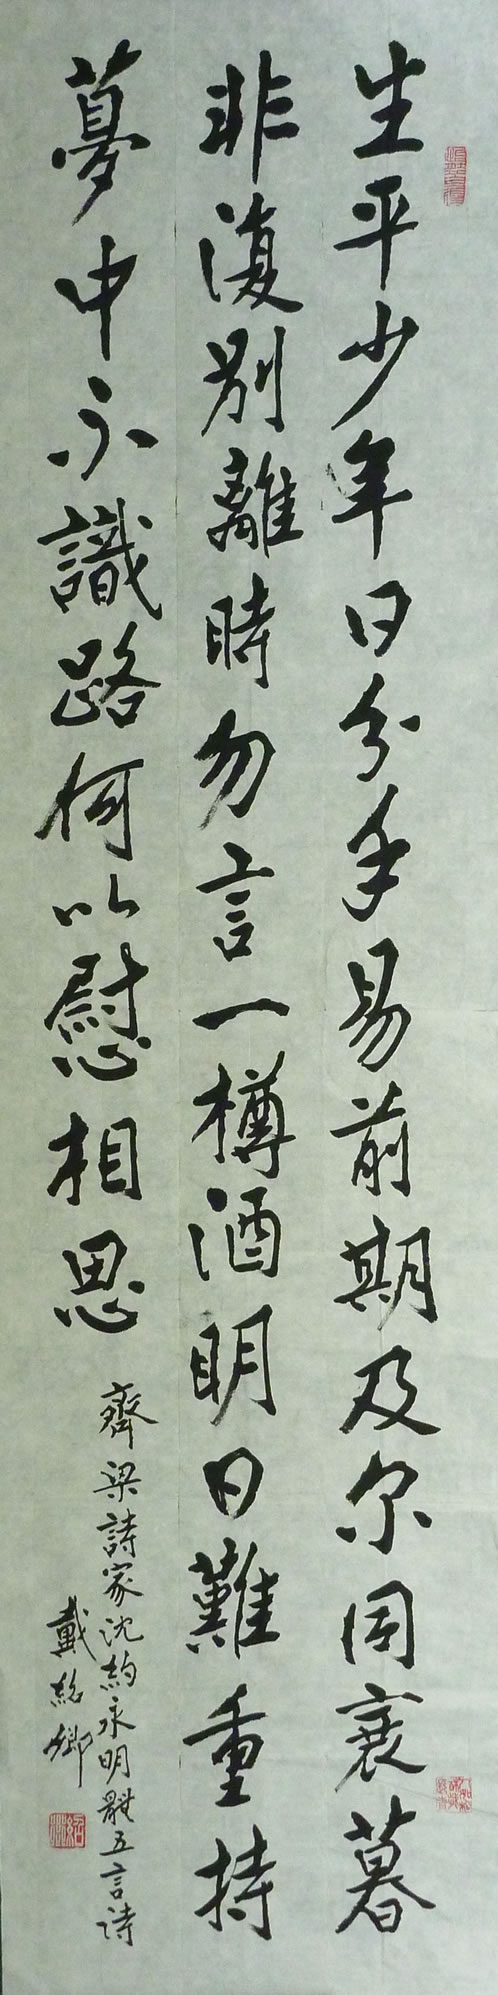 生平少年日分手易前期及尔同衰暮
非復别離時勿言一樽酒明日難重持
夢中不識路何以慰相思
齊梁詩家沈約永明體五言詩
戴紹卿